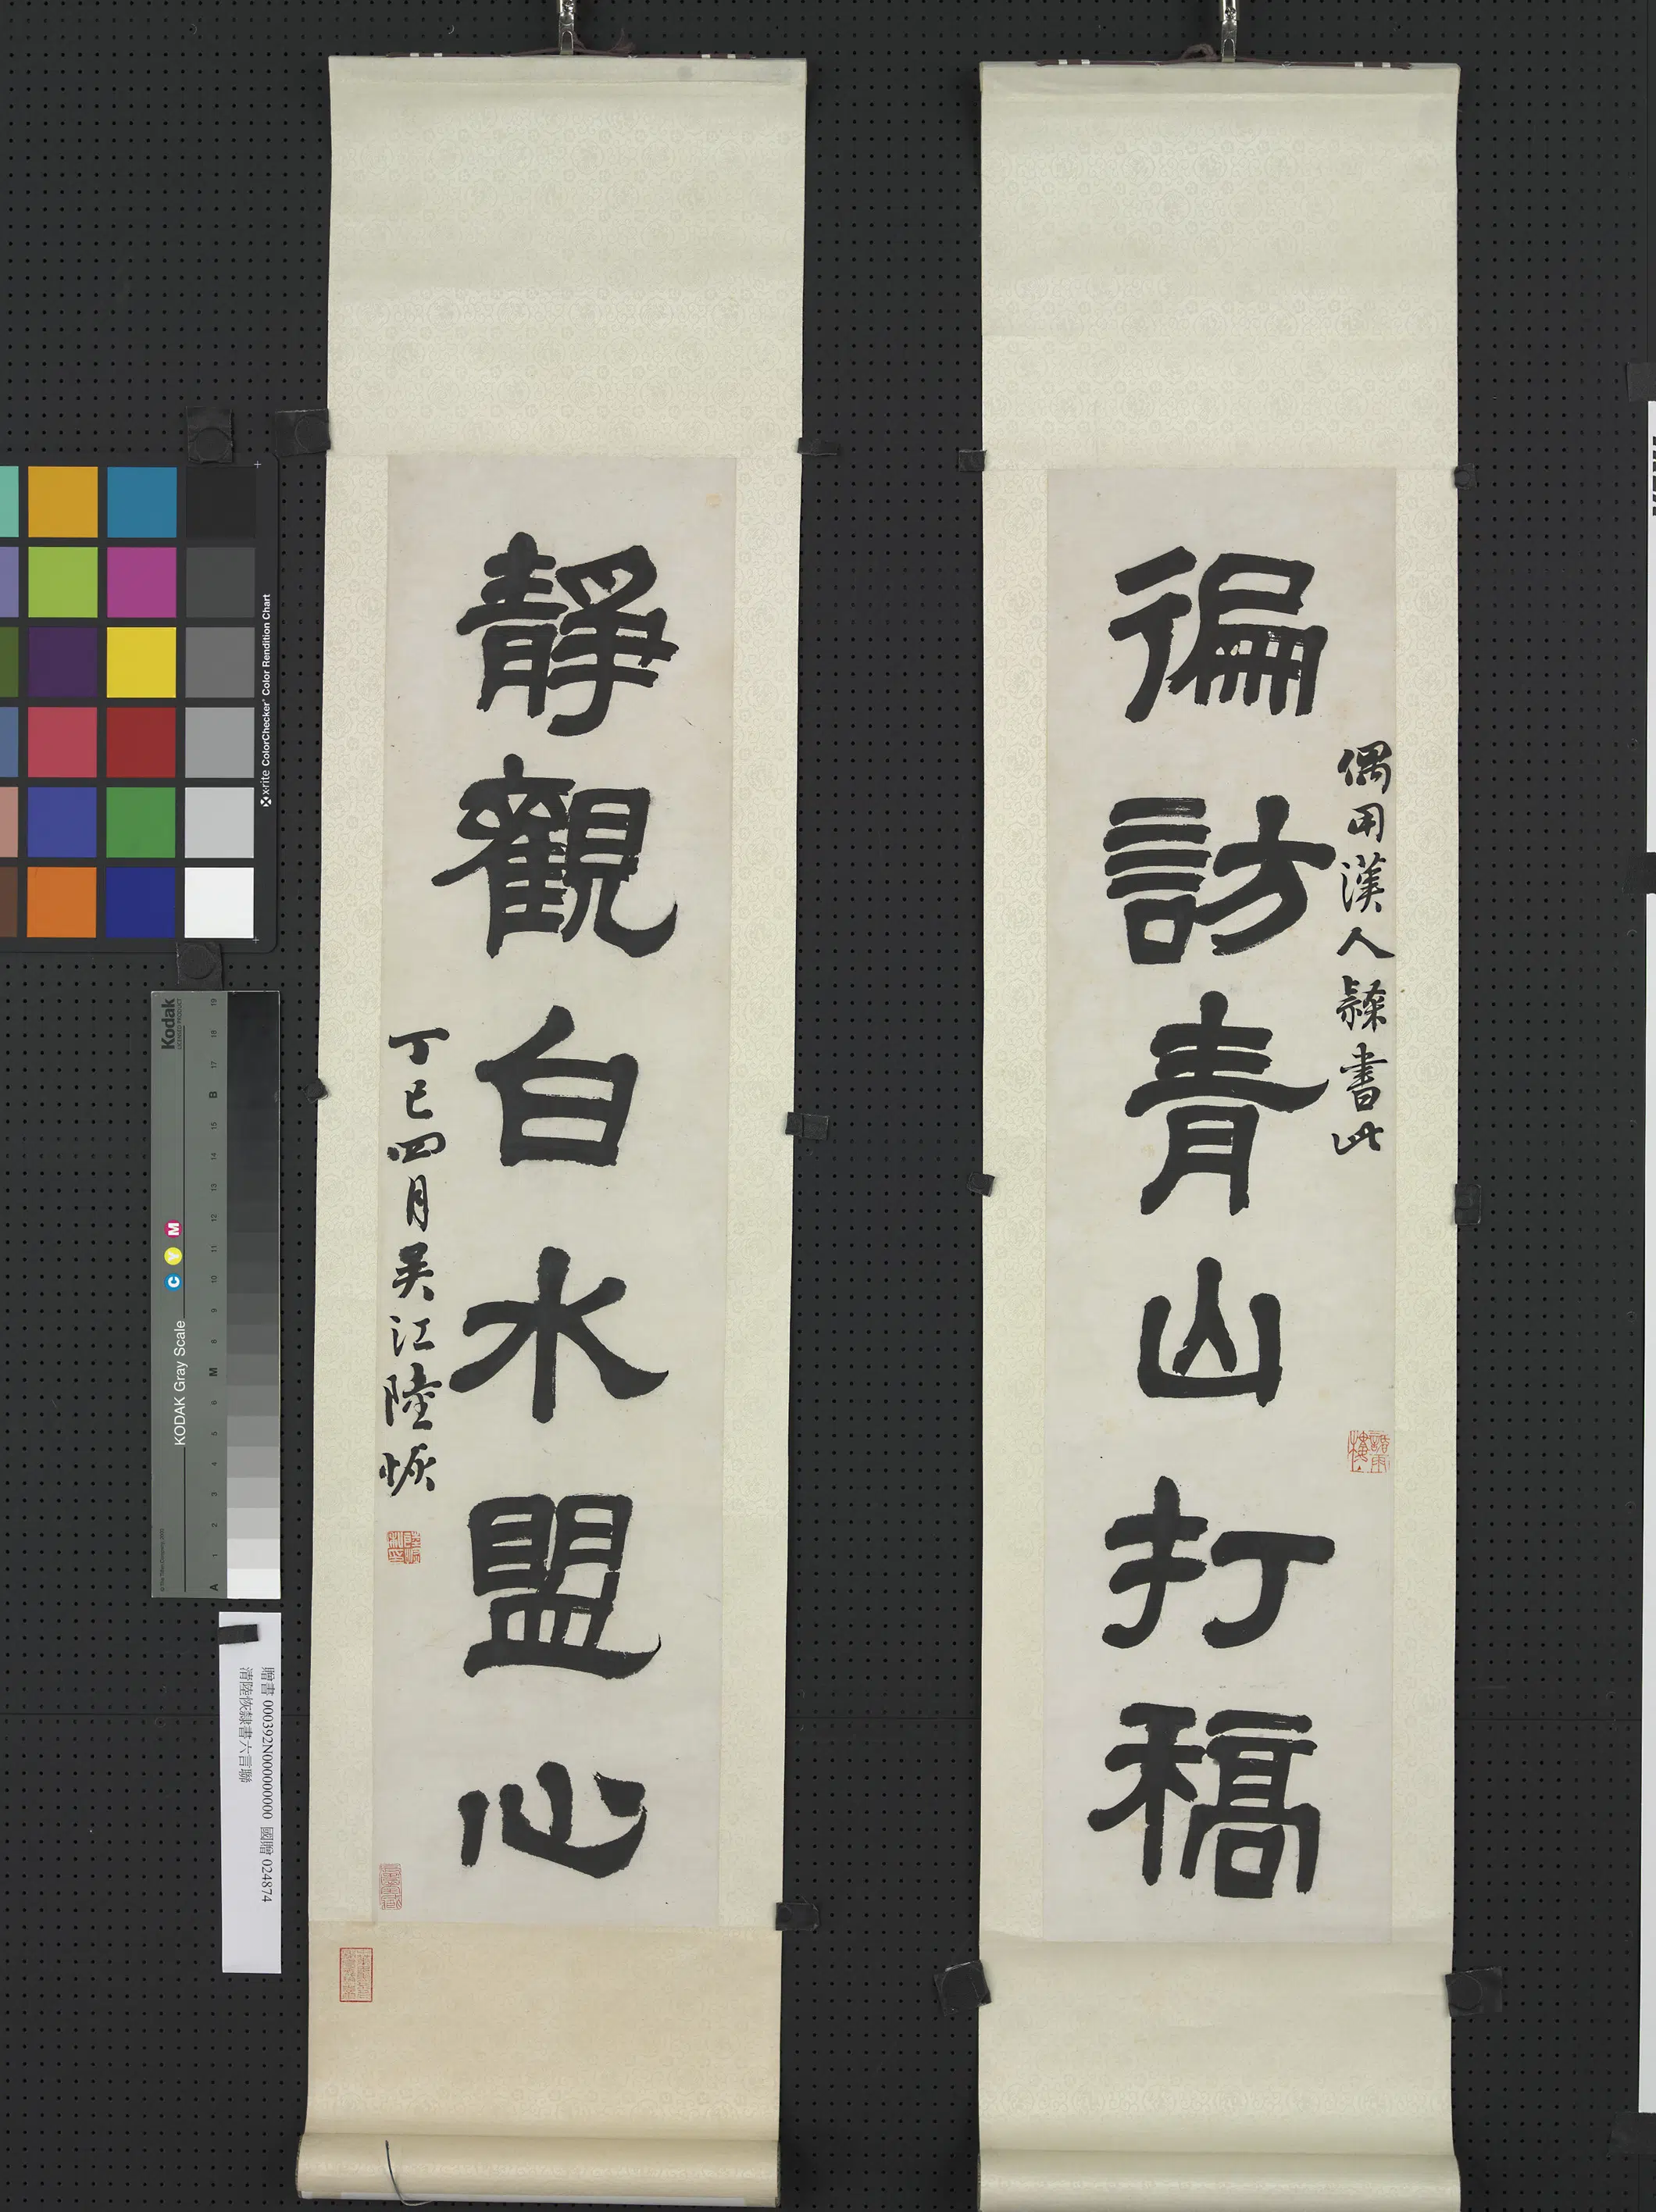 徧訪青山打稿
偶用漢人隸書此
靜觀白水盟心
丁巳四月吳江陸恢
贈書 000392N000000000 國贈 024874
清陸恢隸書六言聯
x-rite ColorChecker Color Rendition Chart
KODAK Gray Scale
Kodak
LICENSED PRODUCT
C Y M
A 1 2 3 4 5 6 M 8 9 10 11 12 13 14 15 B 17 18 19